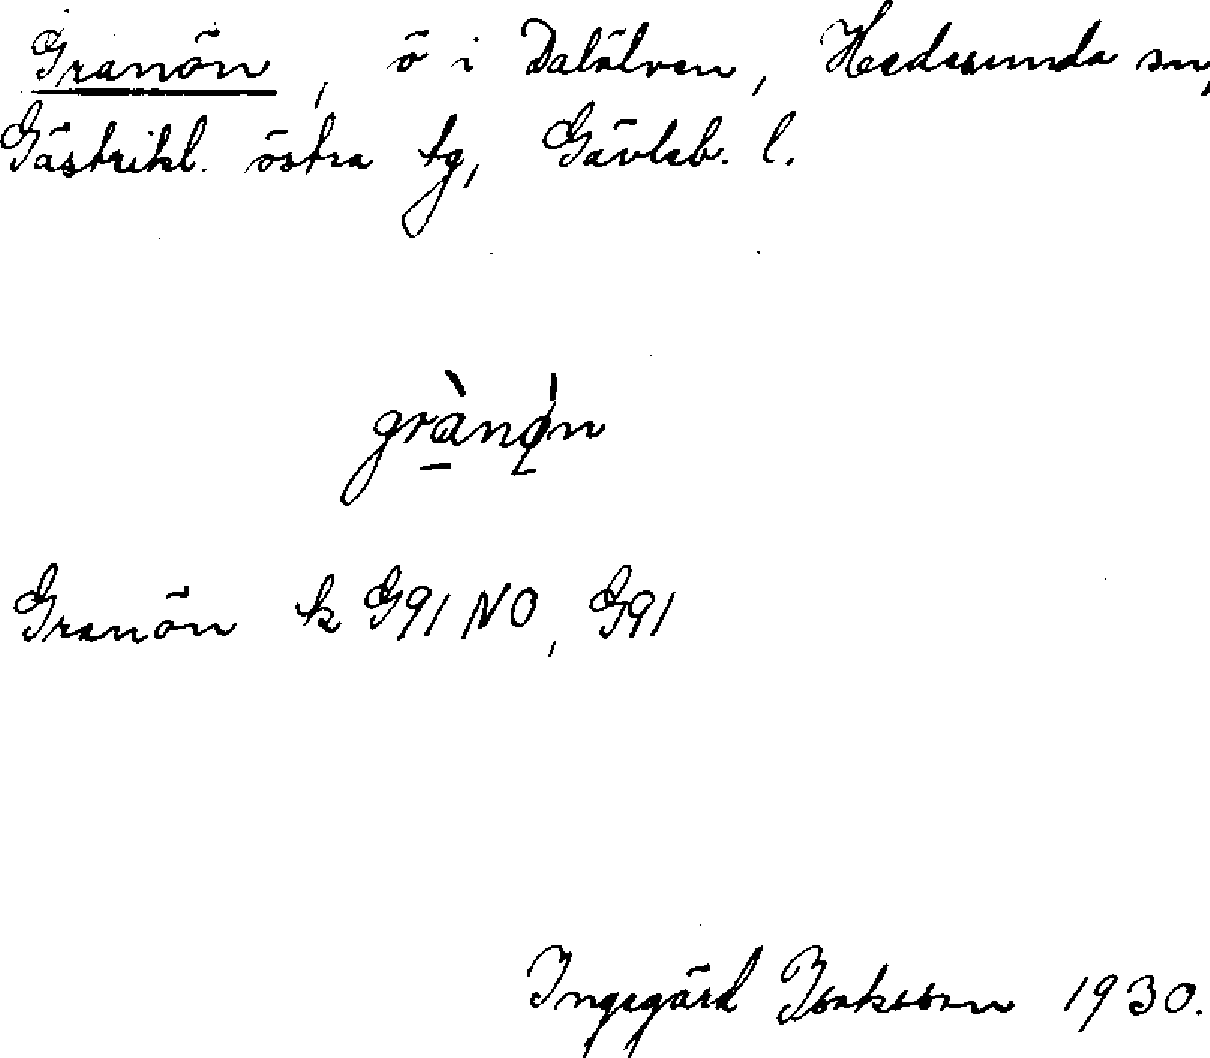 Granön, ö i Dalälven, Hedesunda sn,
Gästrikl. östra tg, Gävleb. l.
grànǿn
Granön k G91 NO, G91
Ingegärd Isaksson 1930.